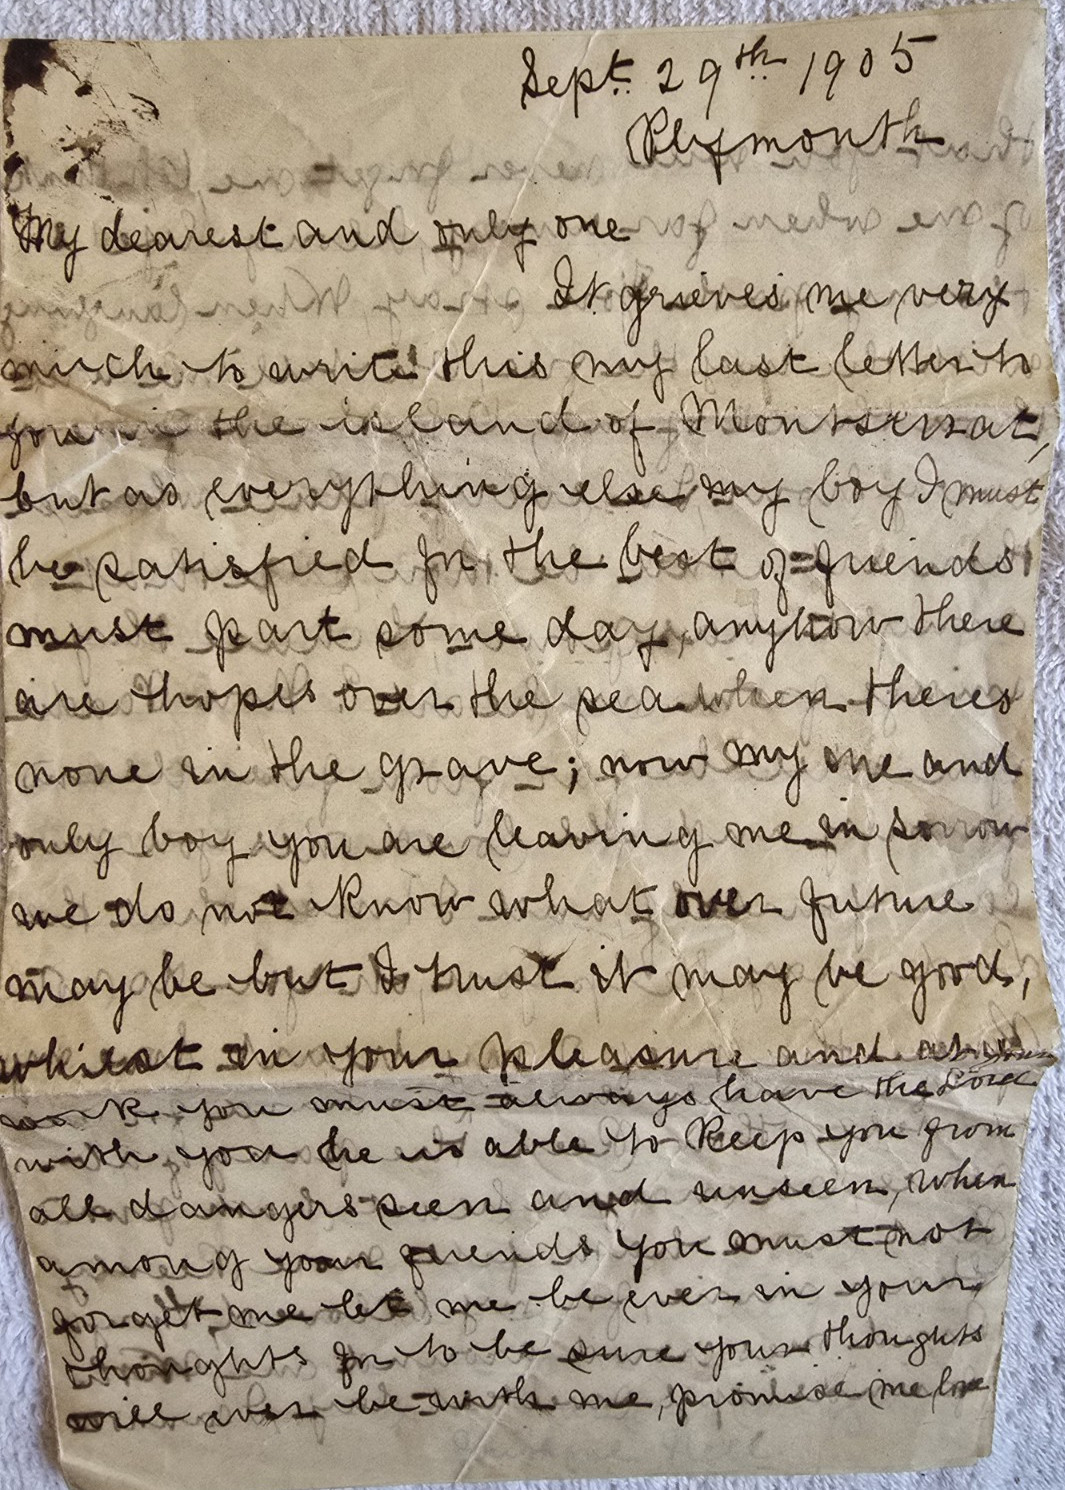 Sept. 29th 1905
Plymouth
My dearest and only one
It grieves me very
much to write this my last letter to
you in the island of Montserrat,
but as everything else my boy I must
be satisfied for the best of friends
must part some day, anyhow there
are hopes over the sea when theres
none in the grave; now my one and
only boy you are leaving me in sorrow
we do not know what over future
may be but I trust it may be good,
whilst in your pleasure and at your
work you must always have the Lord
with you he is able to keep you from
all dangers seen and unseen, when
among your friends you must not
forget me let me be ever in your
thoughts for to be sure your thoughts
will ever be with me, promise me love